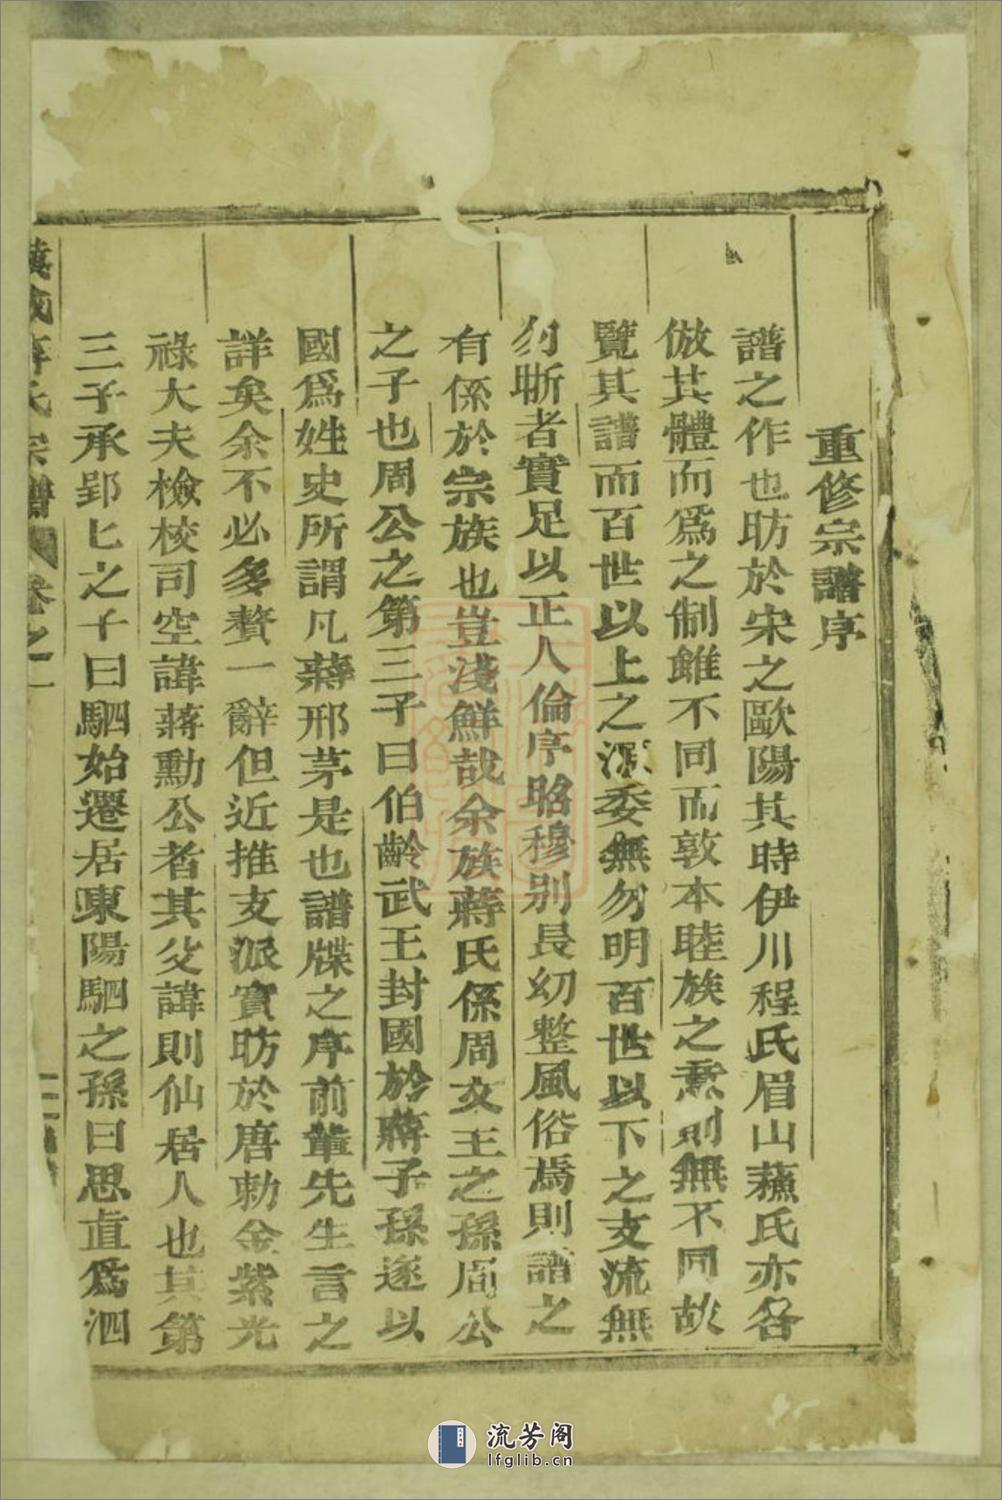 重修宗譜序
譜之作也昉於宋之歐陽其時伊川程氏眉山蘓氏亦各
倣其體而爲之制雖不同而敦本睦族之意則無不同故
覽其譜而百世以上之源委無勿明百世以下之支流無
勿晣者實足以正人倫序昭穆別長幼整風俗焉則譜之
有係於宗族也豈淺鮮哉余族蔣氏係周文王之孫周公
之子也周公之第三子曰伯齡武王封國於蔣子孫遂以
國爲姓史所謂凡蔣邢茅是也譜牒之序前輩先生言之
詳矣余不必多贅一辭但近推支派實昉於唐勅金紫光
祿大夫檢校司空諱蔣勳公者其父諱則仙居人也其第
三子承郢七之子曰駟始遷居東陽駟之孫曰思直爲泗
氏宗譜 卷之一
流芳阁
lfglib.cn